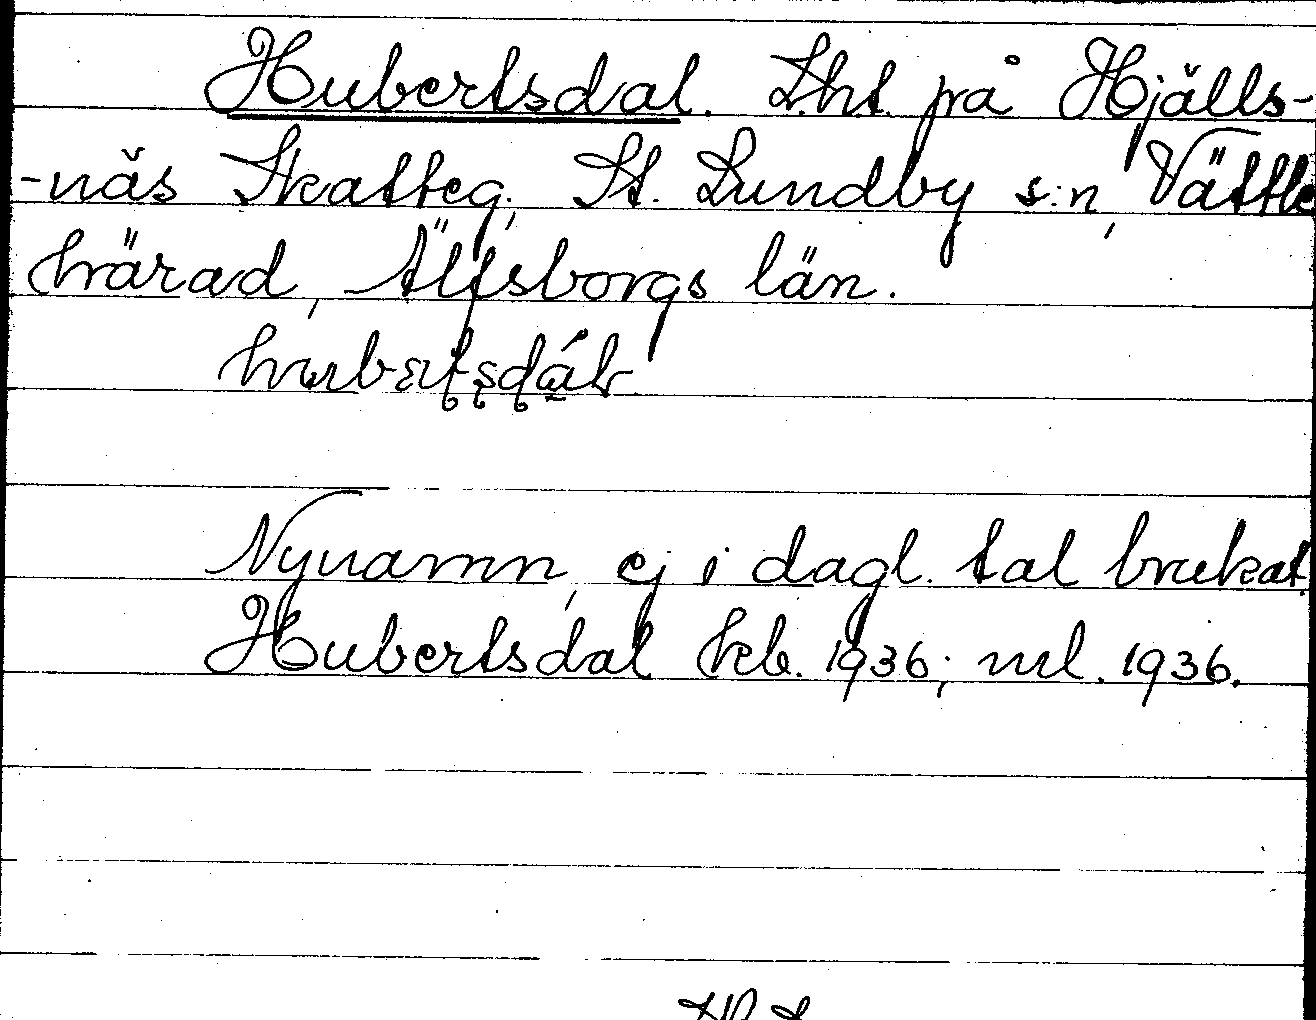 Hubertsdal. Lht. på Hjälls-
-näs Skatteg., St. Lundby s:n, Vättle
härad, Älfsborgs län.
Nynamn, ej i dagl. tal brukat.
Hubertsdal kb. 1936; ml. 1936.